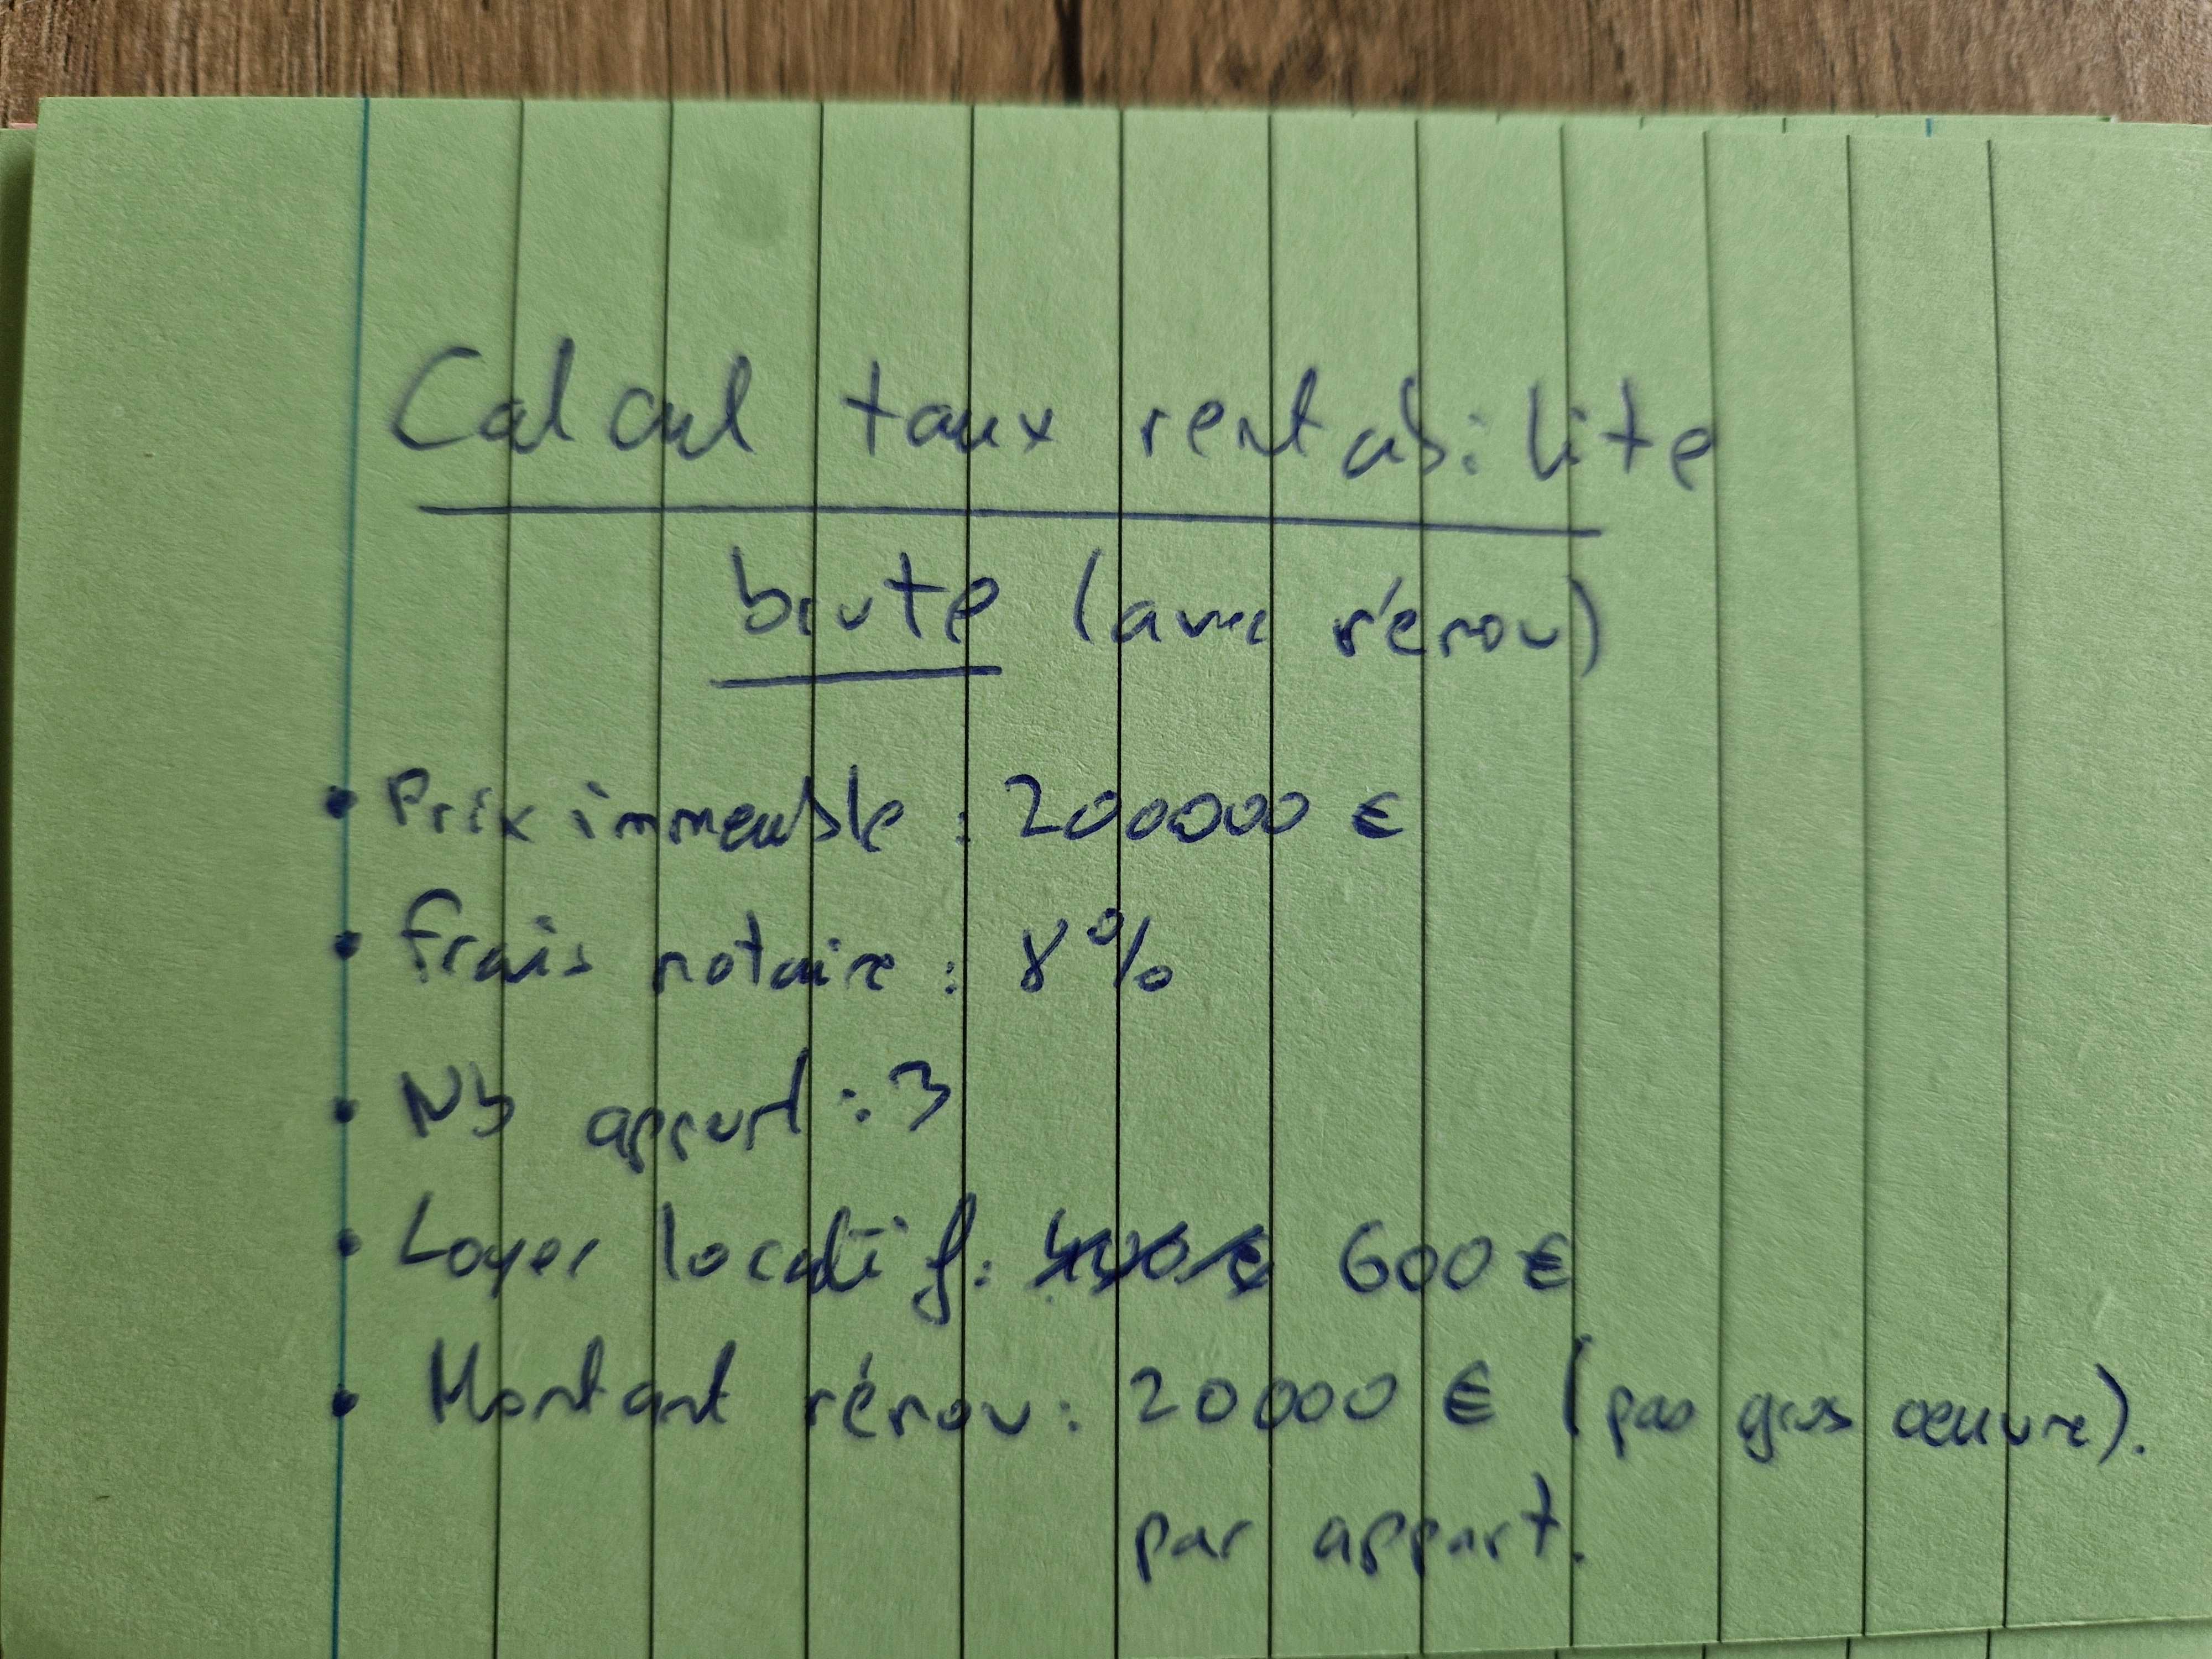 Calcul taux rentabilite
brute (avec rénov)
• Prix immeuble : 200000 €
• Frais notaire : 8%
• Nb appart : 3
• Loyer locatif : 600 €
• Montant rénov : 20000 € (pas gros œuvre).
par appart.